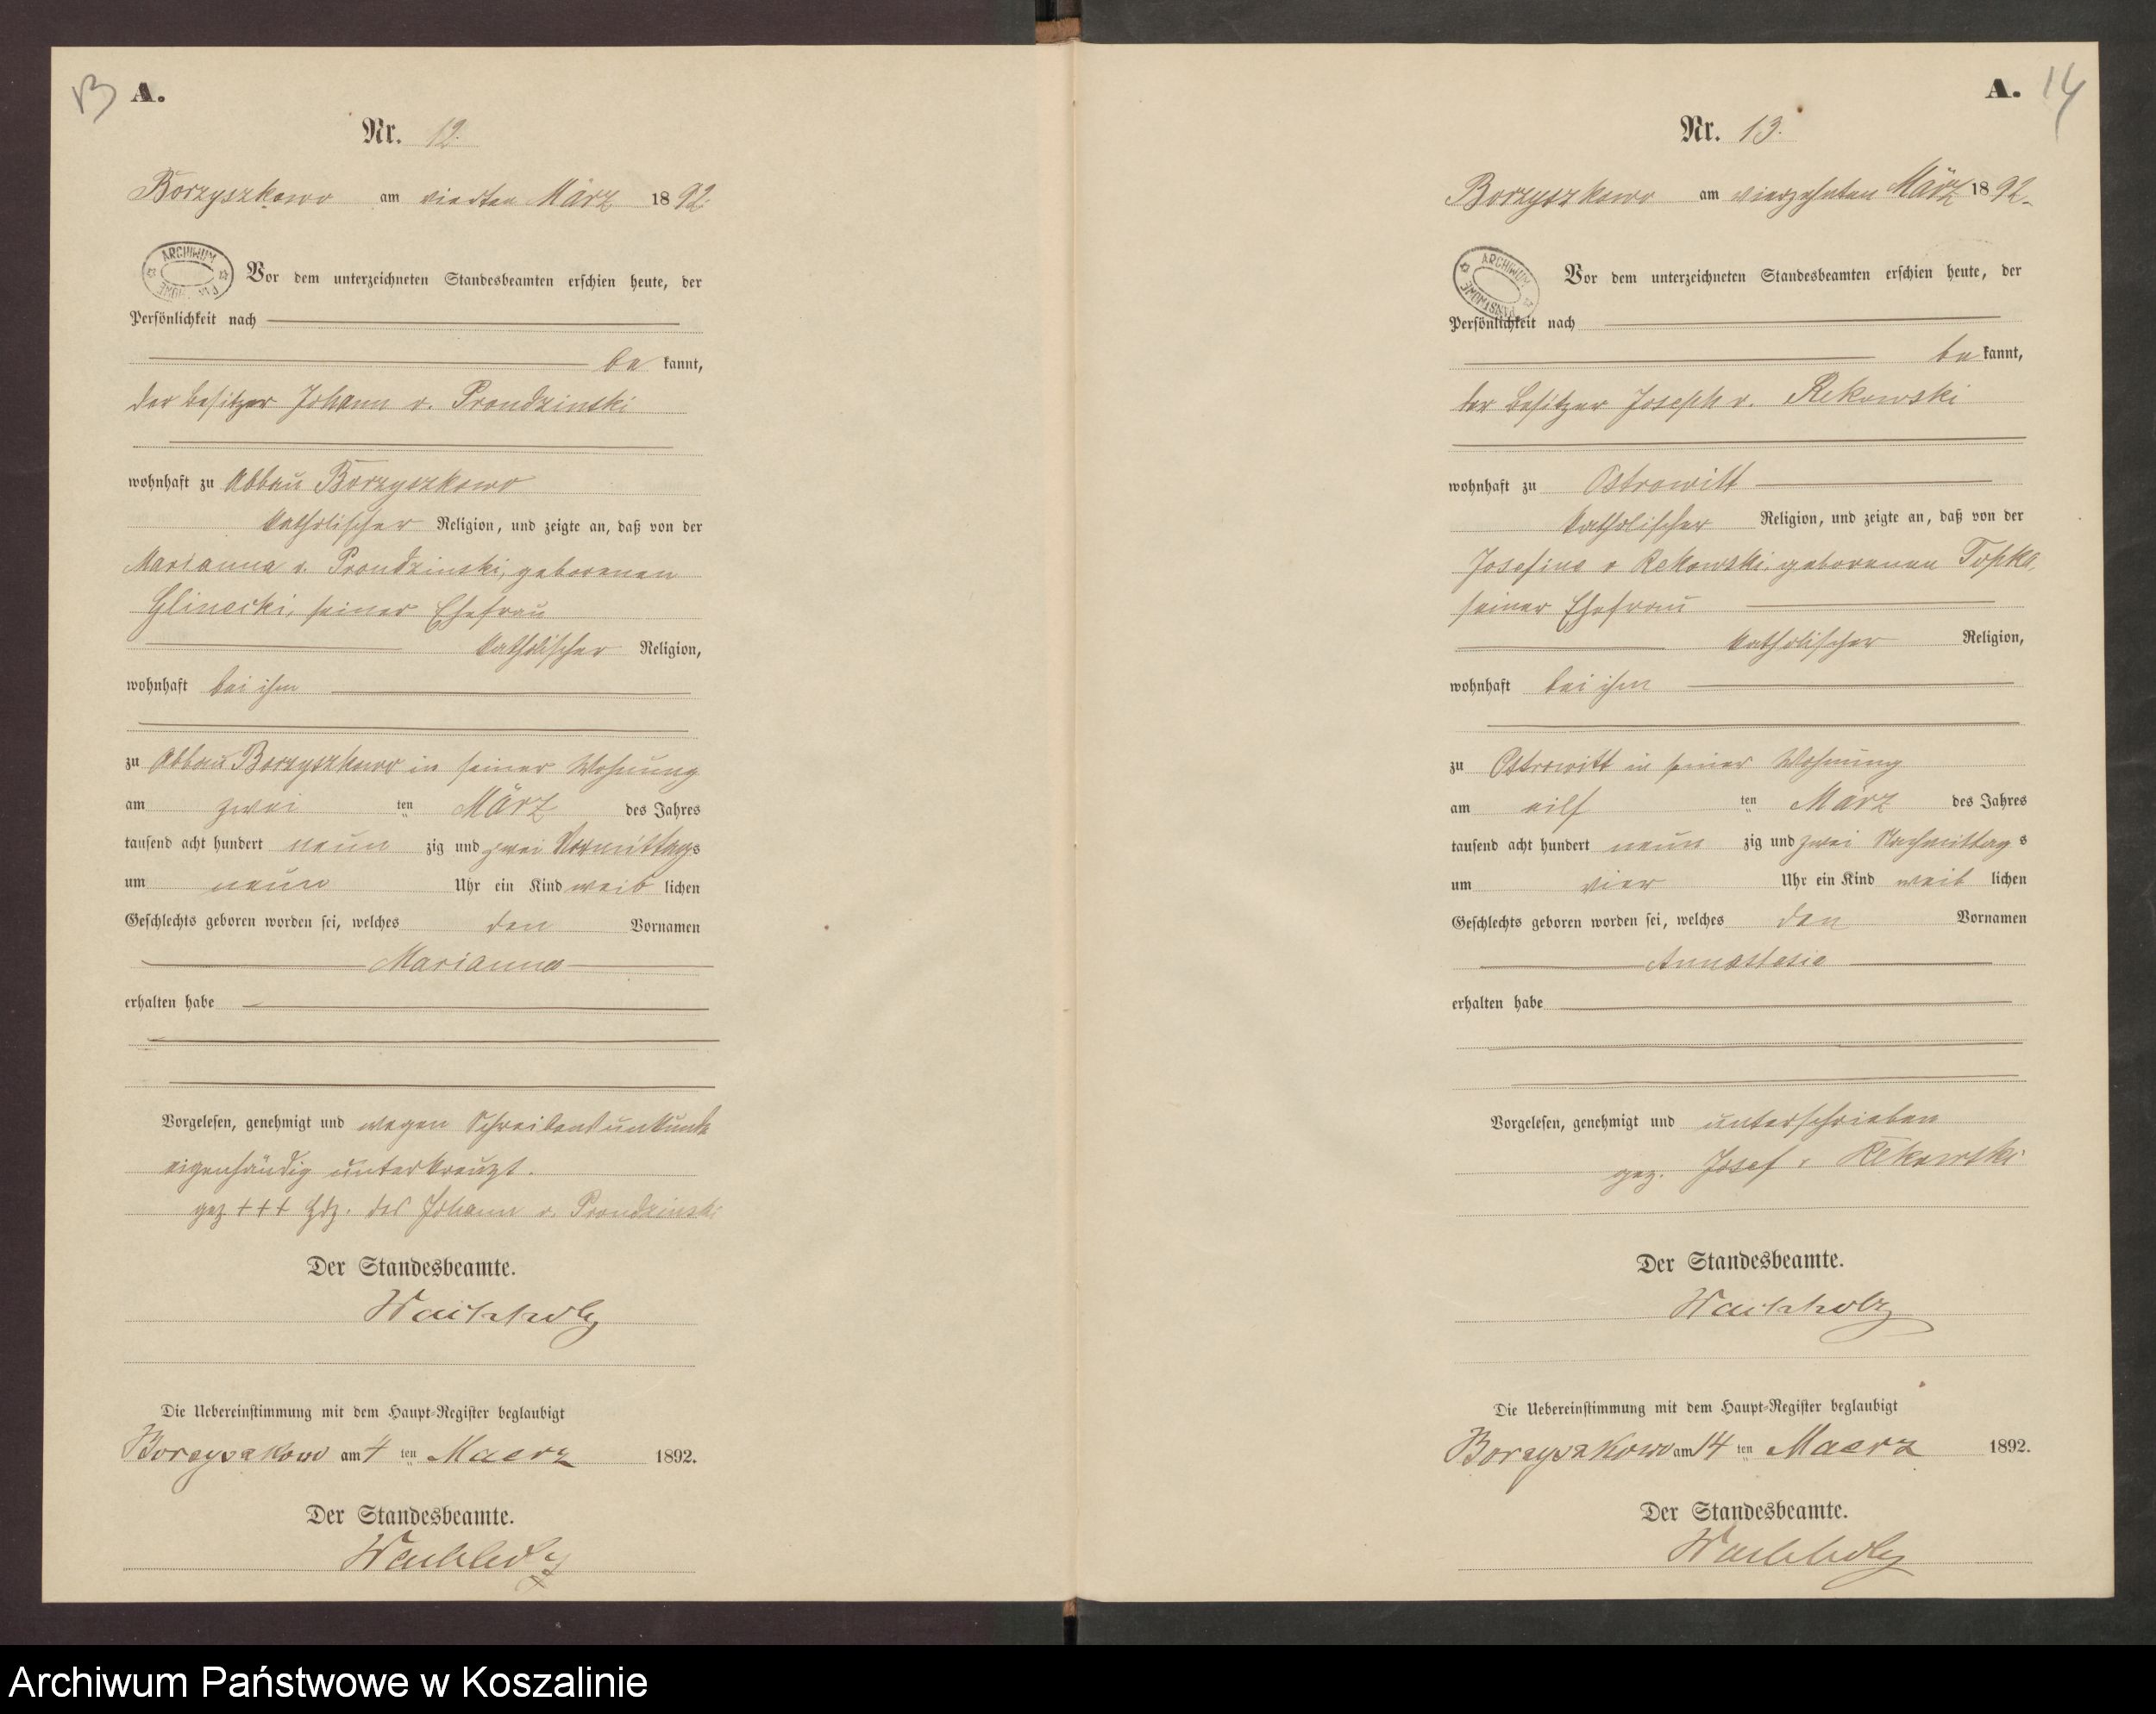 13 A.
Nr. 12.
Borzyszkowo am vierten März 1892.
ARCHIWUM
Vor dem unterzeichneten Standesbeamten erschien heute, der
Persönlichkeit nach
be kannt,
der Besitzer Johann v. Prondzinski
wohnhaft zu Abbau Borzyszkowo
katholischer Religion, und zeigte an, daß von der
Marianna v. Prondzinski, geborenen
Glinecki, seiner Ehefrau
katholischer Religion,
wohnhaft bei ihm
zu Abbau Borzyszkowo in seiner Wohnung
am zwei ten März des Jahres
tausend acht hundert neun zig und zwei Vormittags
um neun Uhr ein Kind weib lichen
Geschlechts geboren worden sei, welches den Vornamen
Marianna
erhalten habe
Vorgelesen, genehmigt und wegen Schreibensunkunde
eigenhändig unterkreuzt.
gez +++ Hdz. des Johann v. Prondzinski
Der Standesbeamte.
Wachholz
Die Uebereinstimmung mit dem Haupt-Register beglaubigt
Borzyszkowo am 4 ten Maerz 1892.
Der Standesbeamte.
Wachholz
A. 14
Nr. 13.
Borzyszkowo am vierzehnten März 1892.
ARCHIWUM PAŃSTWOWE
Vor dem unterzeichneten Standesbeamten erschien heute, der
Persönlichkeit nach
be kannt,
der Besitzer Joseph v. Rekowski
wohnhaft zu Ostrowitt
katholischer Religion, und zeigte an, daß von der
Josefine v Rekowski, geborenen Topka,
seiner Ehefrau
katholischer Religion,
wohnhaft bei ihm
zu Ostrowitt in seiner Wohnung
am eilf ten März des Jahres
tausend acht hundert neun zig und zwei Nachmittag s
um vier Uhr ein Kind weib lichen
Geschlechts geboren worden sei, welches den Vornamen
Annastasia
erhalten habe
Vorgelesen, genehmigt und unterschrieben
gez. Josef v Rekowski
Der Standesbeamte.
Wachholz
Die Uebereinstimmung mit dem Haupt-Register beglaubigt
Borzyszkowo am 14 ten Maerz 1892.
Der Standesbeamte.
Wachholz
Archiwum Państwowe w Koszalinie